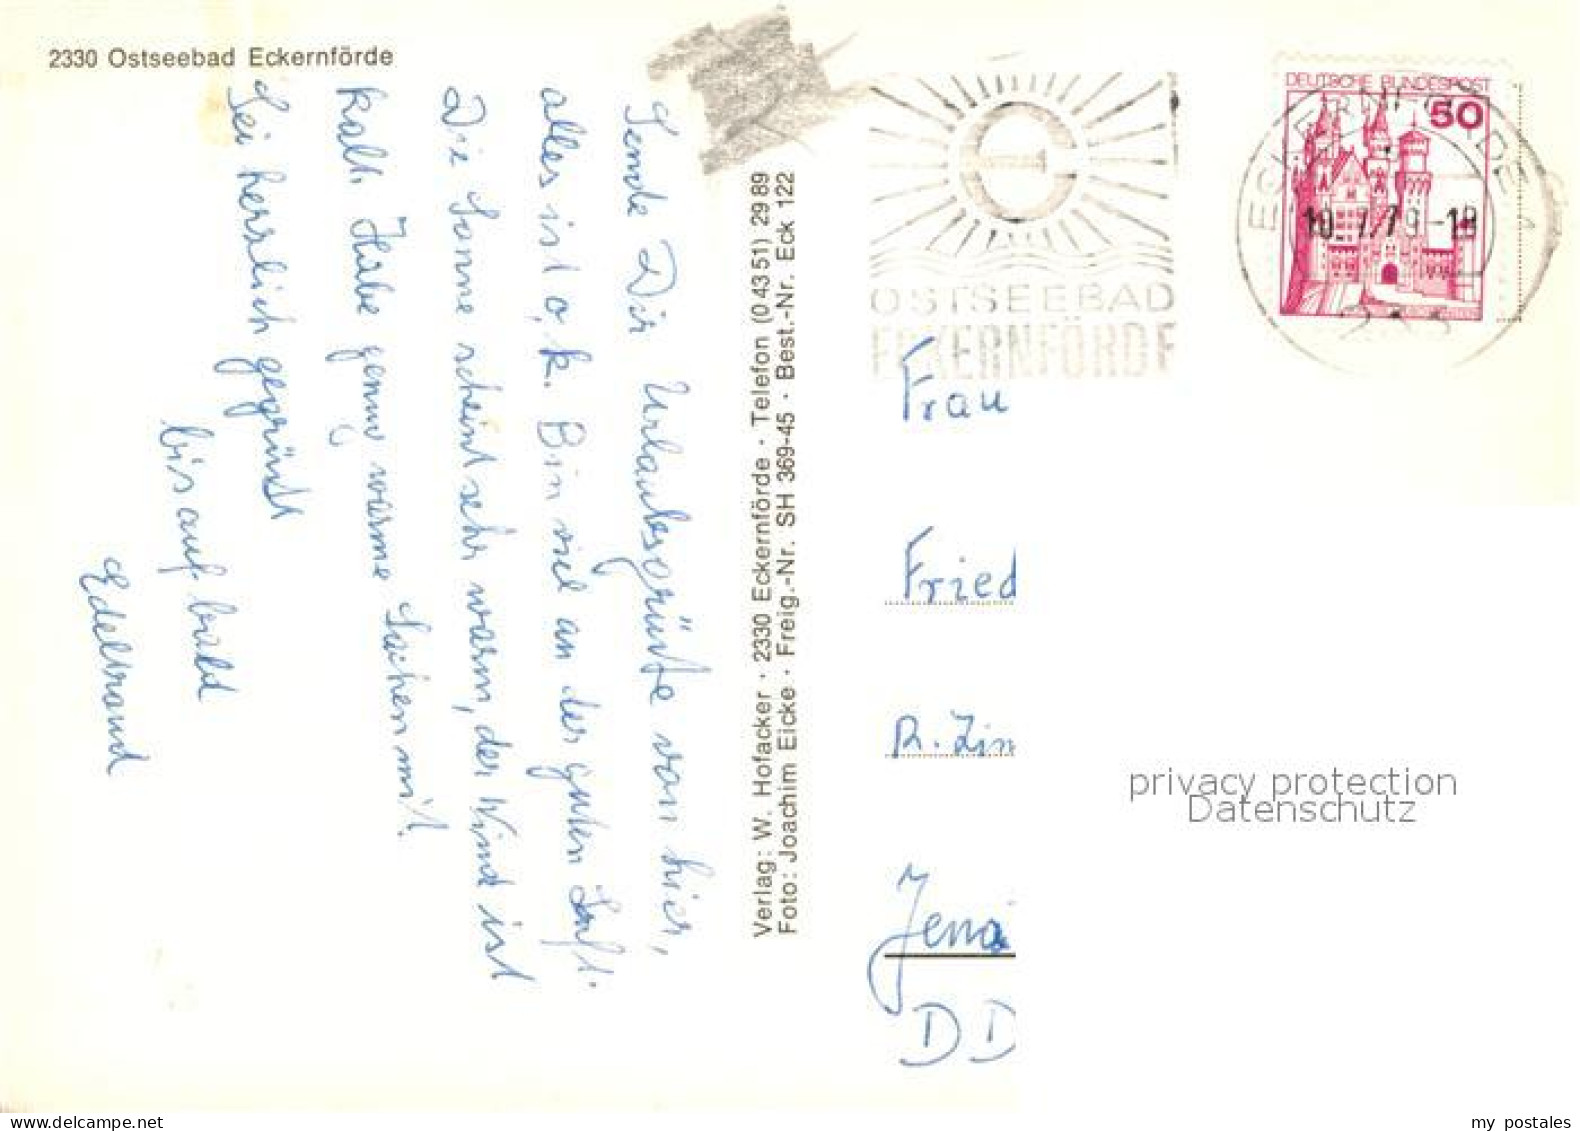 2330 Ostseebad Eckernförde
Sende Dir Urlaubsgrüße von hier,
alles ist o.k. Bin viel an der guten Luft.
Die Sonne scheint sehr warm, der Wind ist
kalt. Habe genug warme Sachen mit.
Sei herzlich gegrüßt
bis auf bald
Edeltraud
Verlag: W. Hofacker · 2330 Eckernförde · Telefon (0 43 51) 29 89
Foto: Joachim Eicke · Freig.-Nr. SH 369-45 · Best.-Nr. Eck 122
OSTSEEBAD
ECKERNFÖRDE
DEUTSCHE BUNDESPOST
50
ECKERNFÖRDE 1
10.7.79-18
Frau
Fried
R. Zim
Jena
DD
privacy protection
Datenschutz
my postales